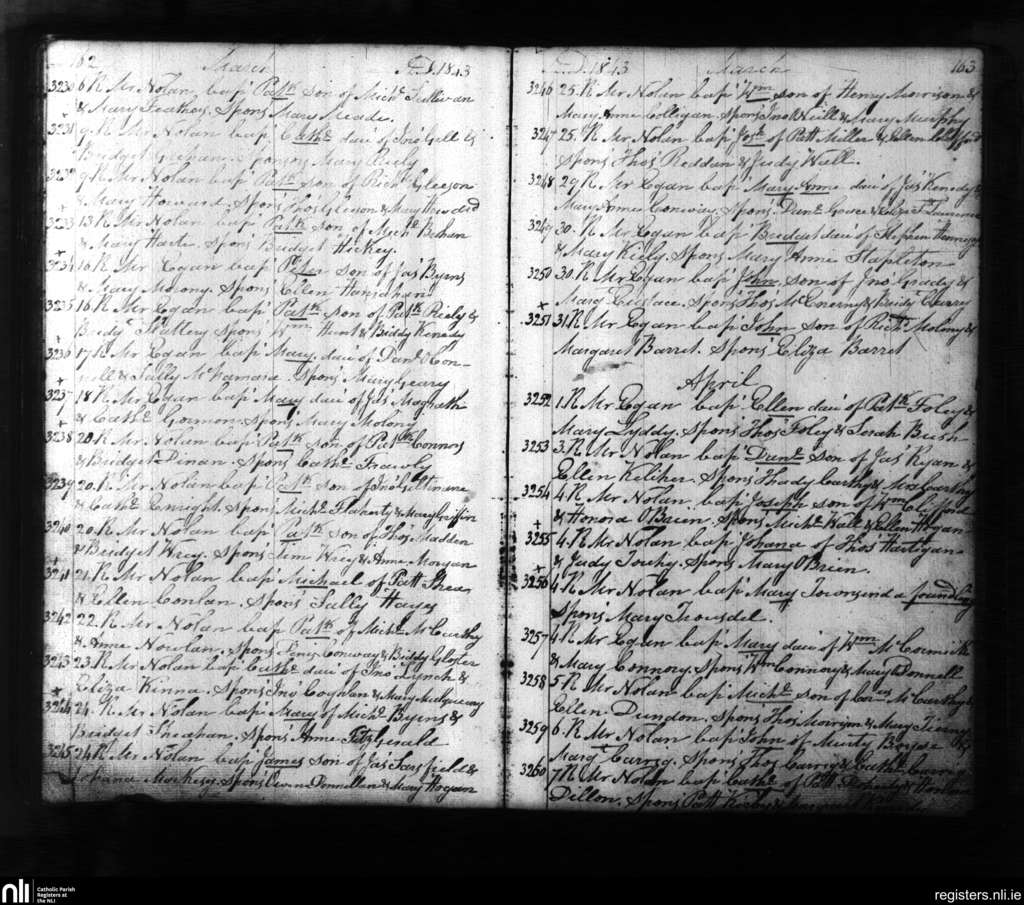 162 March A.D. 1843
3230 6 R Mr Nolan bap' Patk son of Michl Sullivan
& Mary Feathes. Spons Mary Meade.
3231 9 R Mr Nolan bap' Cathe dau' of Jno' Gell &
Bridget Mary Kiely
9 R Mr Nolan bap' Patk son of Richd Gleeson
& Mary Howard. Spons Thos Gleeson & Mary
3233 13 R Mr Nolan bap' Patk son of Michl Behan
& Mary Harte. Spons Bridget Hickey.
3234 16 R Mr Egan bap' Peter son of Jas' Byrns
& Mary Molony. Spons' Ellen Hanrahan
3235 16 R Mr Egan bap' Patk son of Patk Kiely &
Bridgt Slattery spons' Wm Hunt & Biddy Kenedy
3236 17 R Mr Egan bap' Mary dau' of Danl O'Con-
nell & Sally McNamara. Spons' Mary Geary
3237 18 R Mr Egan bap' Mary dau' of Jas' Magrath
& Cathe Gorman. Spons' Mary Molony
3238 20. R Mr Nolan bap' Patk son of Patk Connors
& Bridget Dinan. Spons' Cathe Frawly
3239 20. R Mr Nolan bap' Patk son of Jno'
& Cathe Enright. Spons' Michl Flaherty & Mary Griffin
3240 20. R Mr Nolan bap' Patk son of Thos Madden
& Bridget Wrey. Spons' Jem Wrey & Anne Morgan
3241 21. R Mr Nolan bap' Michael of Patt Shea
& Ellen Conlan. Spons' Sally Hayes
3242 22. R Mr Nolan bap' Patk of Michl McCarthy
& Anne Nowlan. Spons' Conway & Biddy Gloster
3243 23. R Mr Nolan bap' Cathe dau' of Jno Lynch &
Eliza Kinna. Spons' Jno Coghlan & Mary Mulqueeny
3244 24. R Mr Nolan bap' Mary of Michl Byrns &
Bridget Sheahan. Spons' Anne FitzGerald
3245 24 R Mr Nolan bap' James son of Jas' Sarsfield &
Johana Mackesy. Spons' Owen Donnellan & Mary Hogan
A.D. 1843 March 163
3246 25. R Mr Nolan bap' Wm son of Henry Morrison &
Mary Anne Colligan. Spons' Jno O'Neill & Mary Murphy
3247 25. R Mr Nolan bap' Jos of Patt Miller & Ellen
Spons' Thos' Reddan & Judy Wall.
3248 29 R Mr Egan bap' Mary Anne dau' of Jas' Kenedy &
Mary Anne Conway. Spons' Danl Grace &
3249 30. R Mr Egan bap' Bridget dau' of Stephen
& Mary Kiely. Spons' Mary Anne Stapleton
3250 30. R Mr Egan bap' John son of Jno' Grady &
Marg Spons' Thos' McEnerny & Curry
3251 31. R Mr Egan bap' John son of Richd Molony &
Margaret Barret. Spons' Eliza Barret
April
3252 1 R Mr Egan bap' Ellen dau' of Patk Foley &
Mary Lyddy. Spons' Thos' Foley & Sarah Bush
3253 3. R Mr Nolan bap' Danl son of Jas Ryan &
Ellen Keliher. Spons' Thady Carthy & Mrs Carthy
3254 4. R Mr Nolan. bap' Joseph son of Wm Clifford
& Honora O'Brien. Spons' Michl Wall & Ellen Hogan
3255 4. R Mr Nolan bap' Johana of Thos' Hartigan
& Judy Touhy. Spons' Mary Brien.
3256 4 R Mr Nolan bap' Mary Townsend a foundling
Spons' Mary Trousdel.
3257 4 R Mr Egan bap' Mary dau' of Wm McCormick
& Mary Connory. Spons' Wm Connory & Mary O'Donnell
3258 5 R Mr Nolan bap' Michl son of McCarthy &
Ellen Dundon. Spons' Thos' & Mary Tierny
3259 6. R Mr Nolan bap' John of Murty Boyse &
Marg Carrig. Spons' Thos' Carrig & Cathe Carrig
3260 7. R Mr Nolan bap' Cathe of Patt &
Dillon. Spons' Patt
nli Catholic Parish
Registers at
the NLI
registers.nli.ie